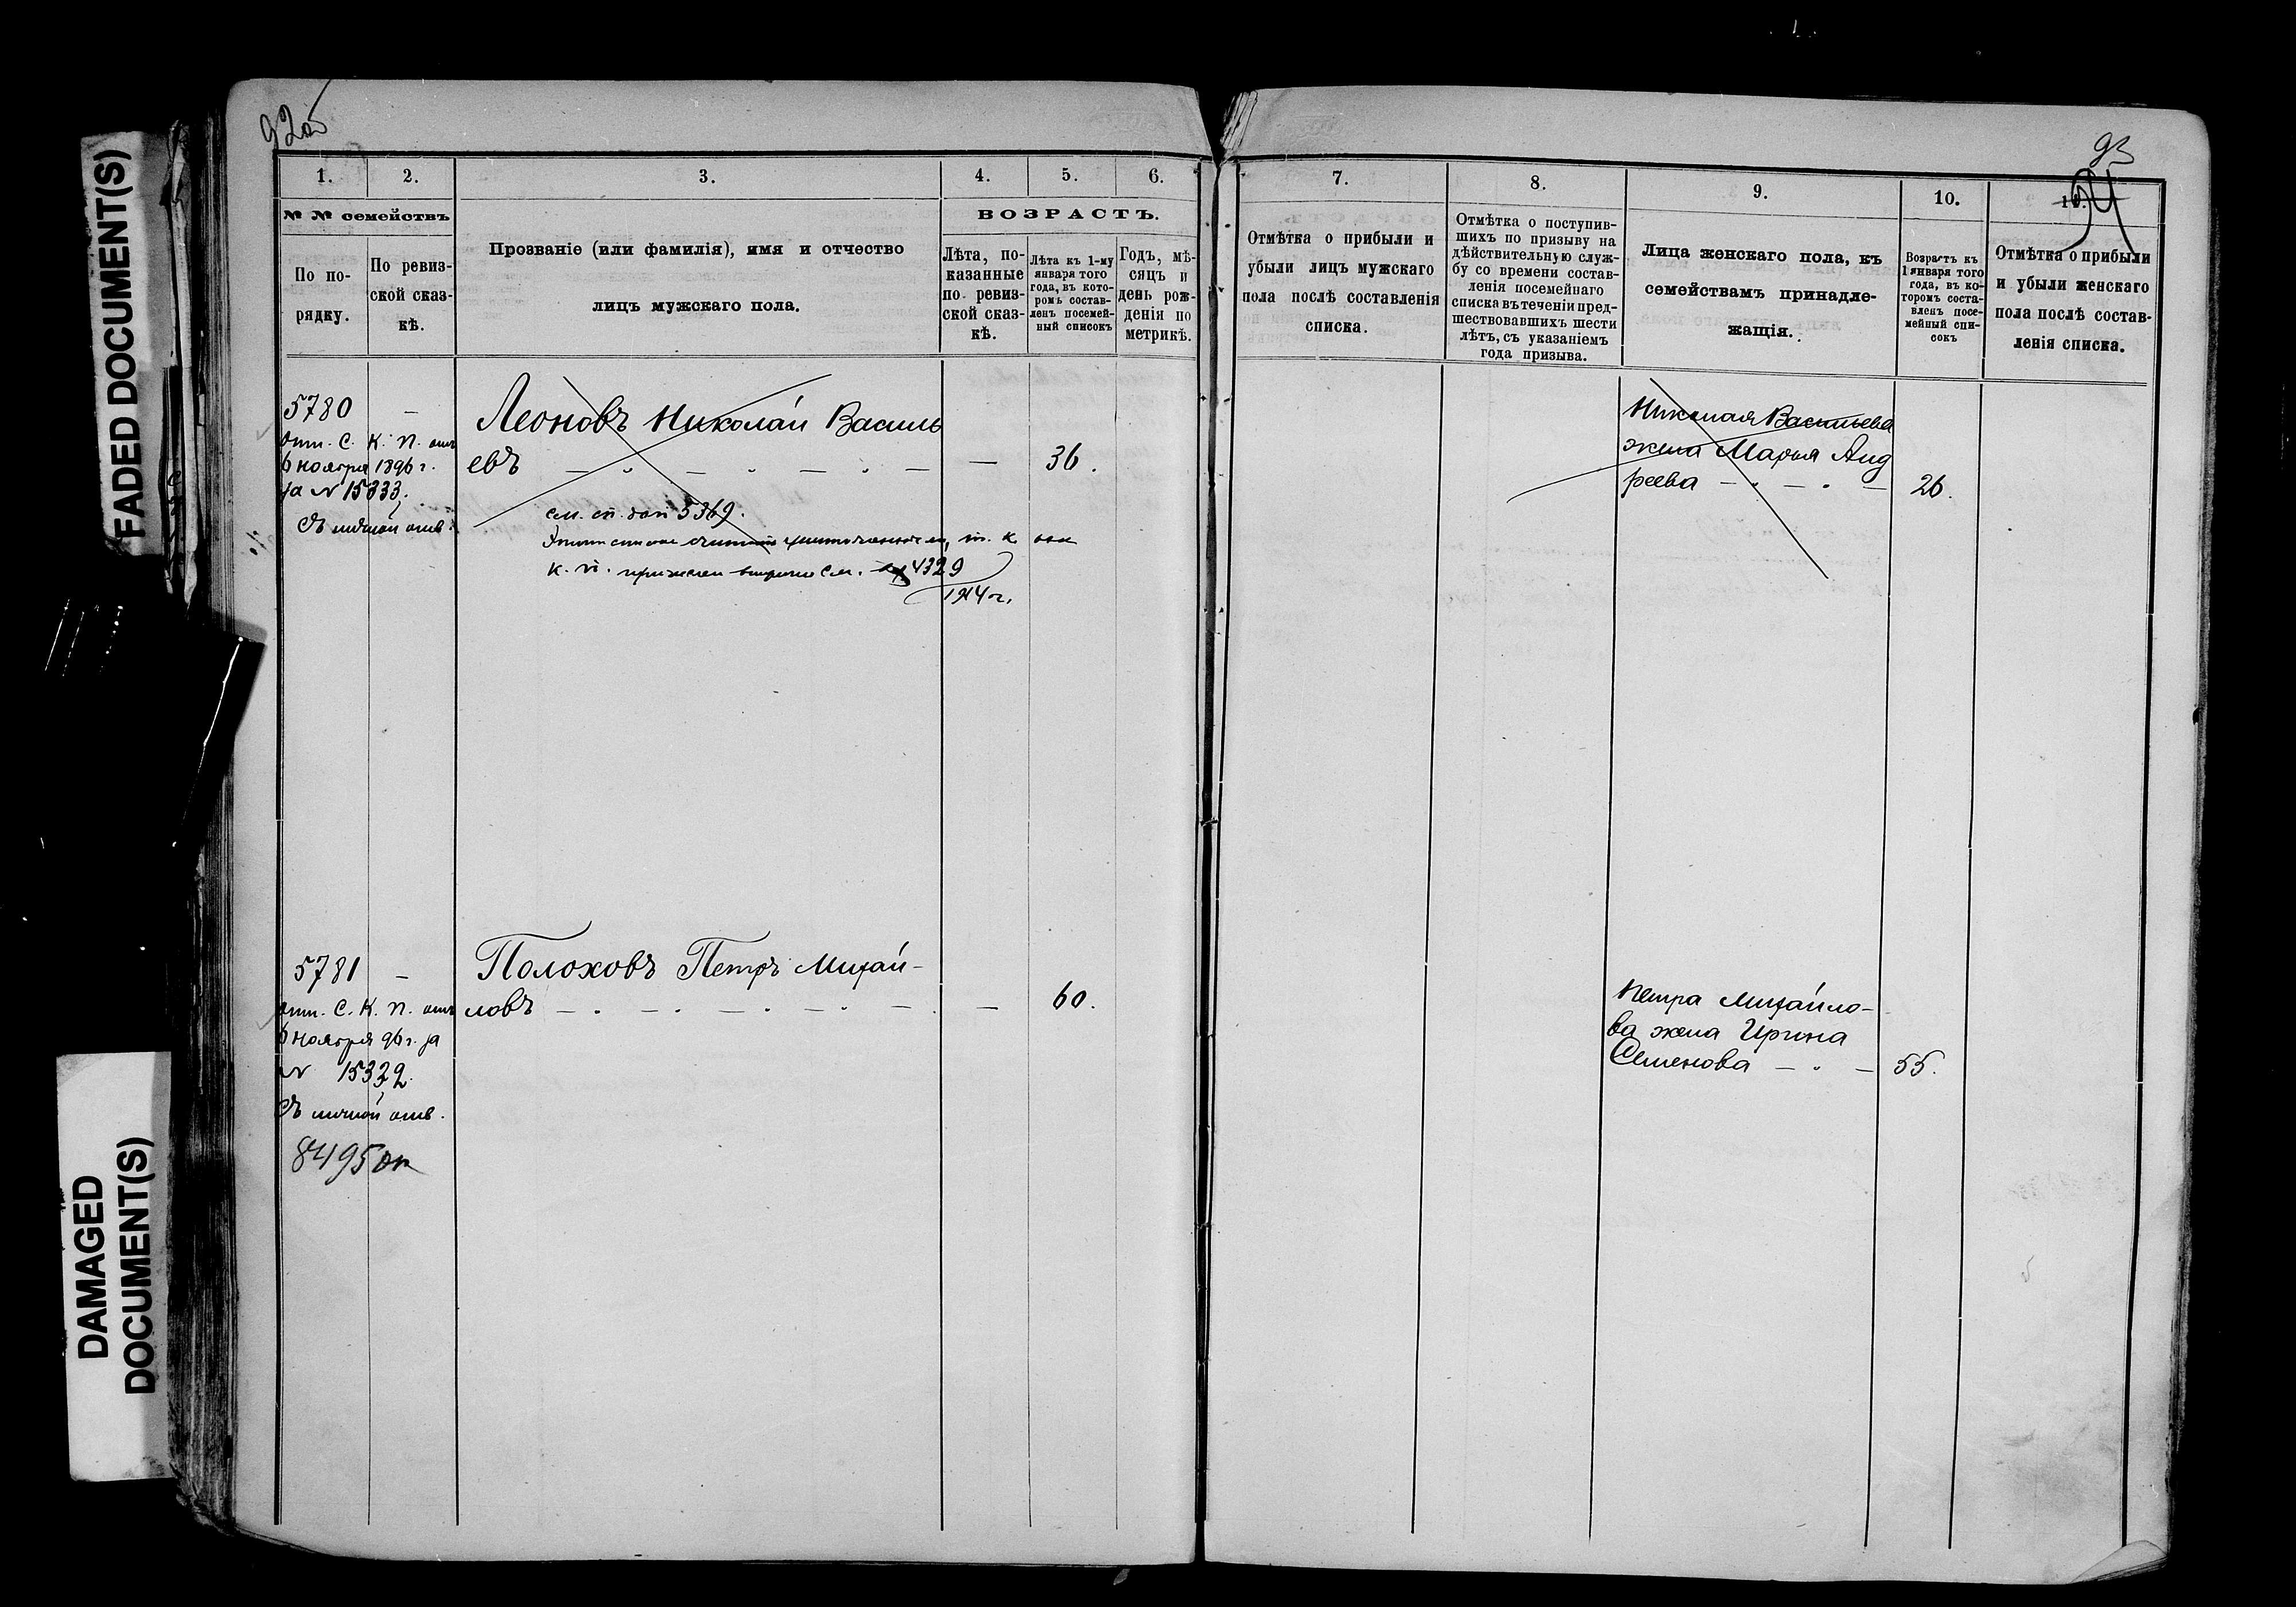 FADED DOCUMENT(S)
DAMAGED
DOCUMENT(S)
92об
1.
2.
3.
4.
5.
6.
№ № семействъ
По по-
рядку.
По ревиз-
ской сказ-
кѣ.
Прозваніе (или фамилія), имя и отчество
лицъ мужскаго пола.
ВОЗРАСТЪ.
Лѣта, по-
казанные
по ревиз-
ской сказ-
кѣ.
Лѣта къ 1-му
января того
года, въ кото-
ромъ состав-
ленъ посемей-
ный списокъ
Годъ, мѣ-
сяцъ и
день рож-
денія по
метрикѣ.
5780 —
отн. С. К. П. отъ
6 ноября 1896 г.
за № 15333.
Съ личной отв.
Леоновъ Николай Василь
евъ — „ — „ — „ — — 36.
см. сп. доп 5369.
списокъ считать уничтоженнымъ, т. к.
к. п. см. 4329
1914 г.
5781 —
отн. С. К. П. отъ
6 ноября 96 г. за
№ 15332.
Съ личной отв.
8495 оп
Полоховъ Петръ Михай-
ловъ — „ — „ — „ — „ — — 60.
93
94
7.
8.
9.
10.
11.
Отмѣтка о прибыли и
убыли лицъ мужскаго
пола послѣ составленія
списка.
Отмѣтка о поступив-
шихъ по призыву на
дѣйствительную служ-
бу со времени состав-
ленія посемейнаго
списка въ теченіи пред-
шествовавшихъ шести
лѣтъ, съ указаніемъ
года призыва.
Лица женскаго пола, къ
семействамъ принадле-
жащія.
Возрастъ къ
1 января того
года, въ ко-
торомъ соста-
вленъ посе-
мейный спи-
сокъ
Отмѣтка о прибыли
и убыли женскаго
пола послѣ состав-
ленія списка.
Николая Васильева
жена Марья Анд
реева — „ — „ — 26.
Петра Михайло-
ва жена Ирина
Семенова — „ — 55.